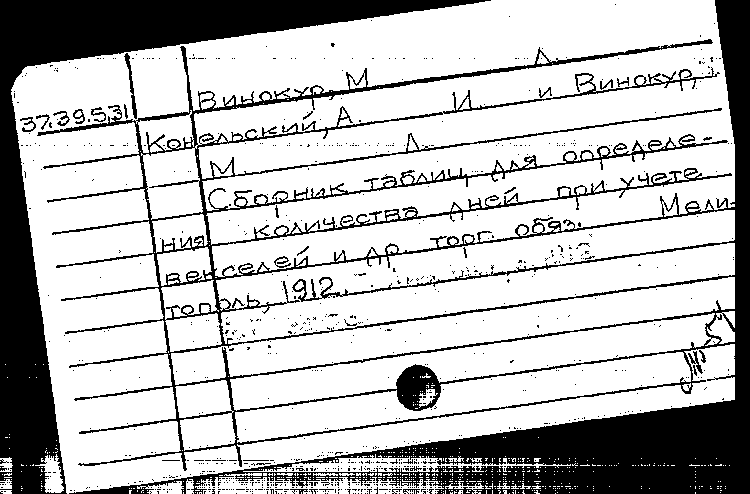 Винокур, М. Л.
37.39.5.31
Конельский, А. И. и Винокур,
М. Л.
Сборник таблиц для определе-
ния количества дней при учете
векселей и др. торг. обяз. Мели-
тополь, 1912.